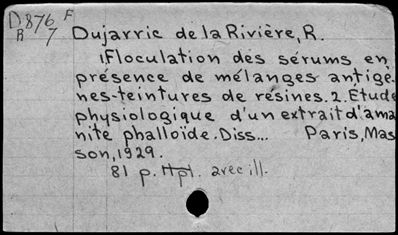 D876 F
B 7
Dujarric de la Rivière, R.
1Floculation des sérums en
présence de mélanges antigè-
nes-teintures de résines. 2. Etude
physiologique d'un extrait d'ama
nite phalloïde. Diss... Paris, Mas
son, 1929.
81 p. Hpl. avec ill.